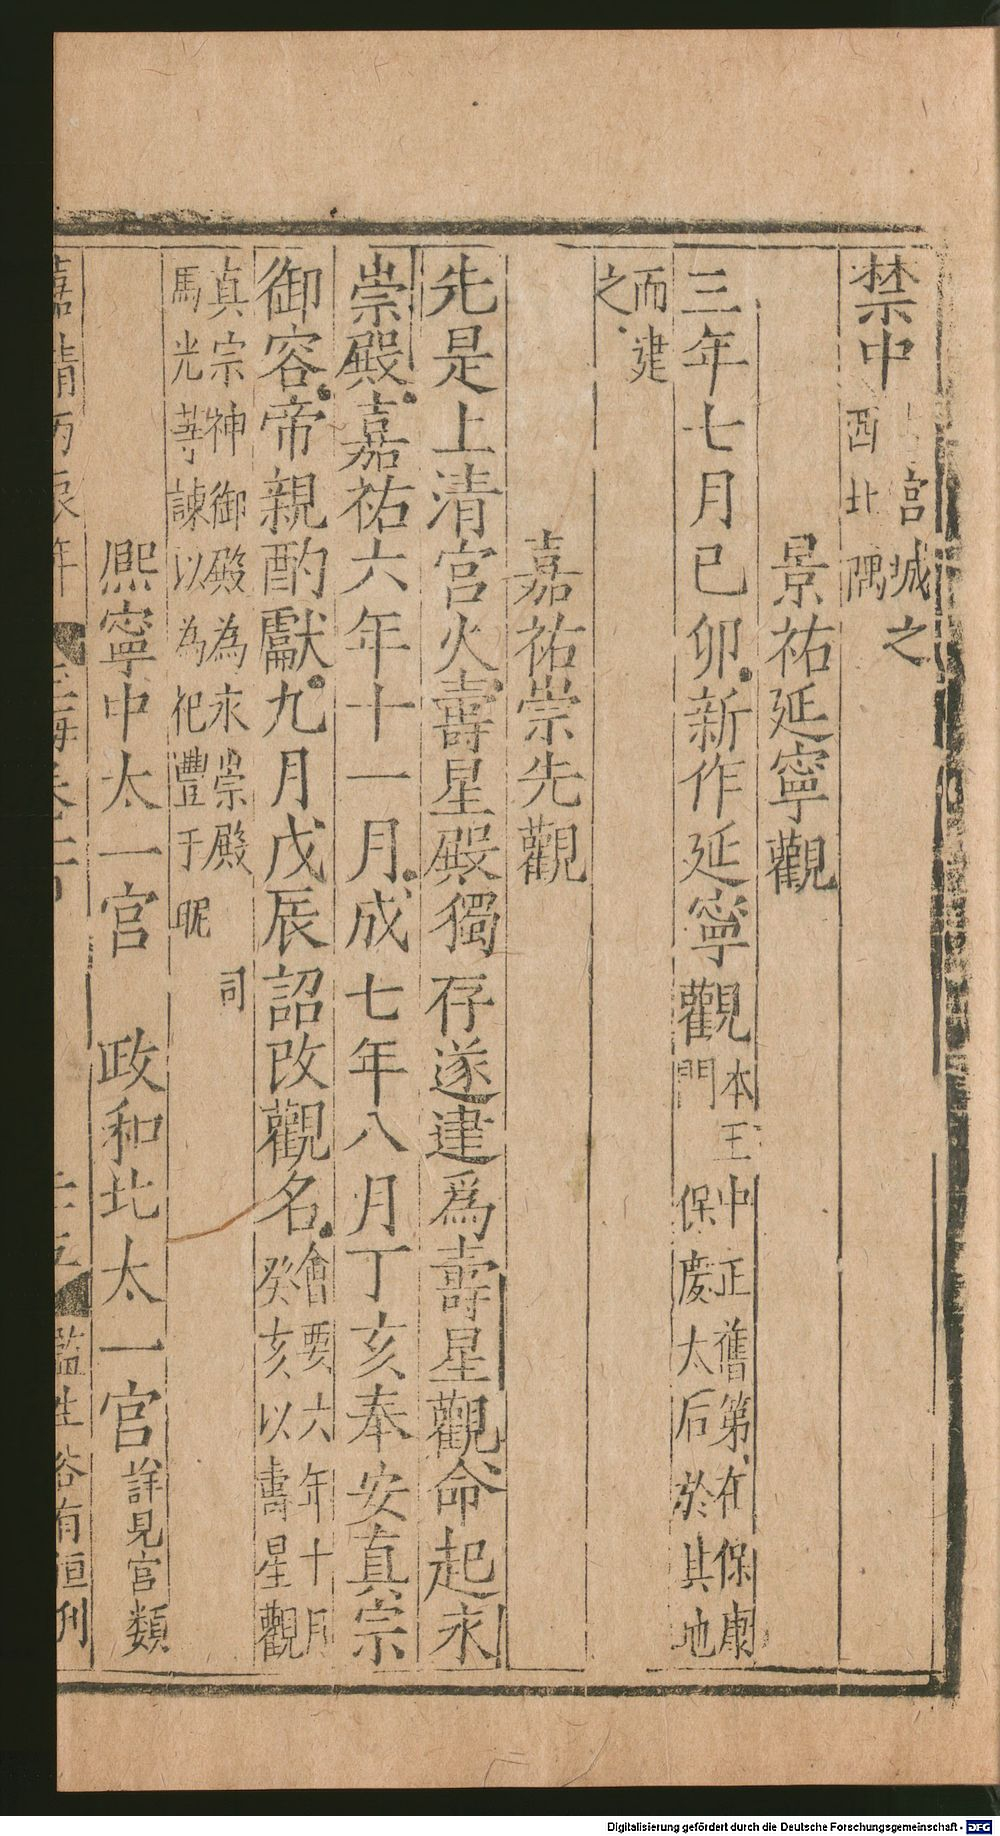 禁中宮城之西北隅
景祐延寧觀
三年七月己卯新作延寧觀本王中正舊第在保康門保慶太后於其地
而建之
嘉祐崇先觀
先是上清宮火壽星殿獨存遂建為壽星觀命起永
崇殿嘉祐六年十一月成七年八月丁亥奉安真宗
御容帝親酌獻九月戊辰詔改觀名會要六年十月癸亥以壽星觀
真宗神御殿為永崇殿司馬光等諫以為祀豐于昵
熈寧中太一宮 政和北太一宮詳見宮類
嘉靖丙辰年 玉海卷 監生 有恒刊
Digitalisierung gefördert durch die Deutsche Forschungsgemeinschaft - DFG